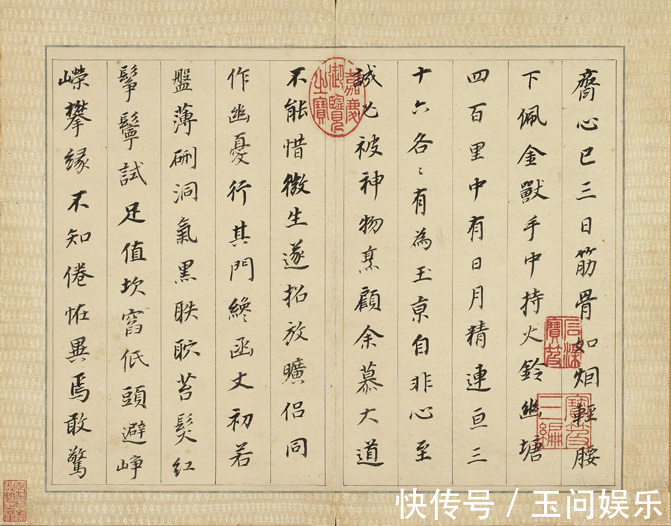 齋心已三日筋骨如烟輕腰
下佩金獸手中持火鈴幽塘
四百里中有日月精連亘三
十六各〻有為玉京自非心至
誠必被神物烹顧余慕大道
不能惜微生遂招放曠侣同
作幽憂行其門纔函丈初若
盤薄硎洞氣黑眣苔髮紅
鬇鬡試足值坎窞低頭避崢
嶸攀緣不知倦怪異焉敢驚
嘉慶御覽之寶
石渠寶笈
寶笈三編
快传号 / 玉问娱乐